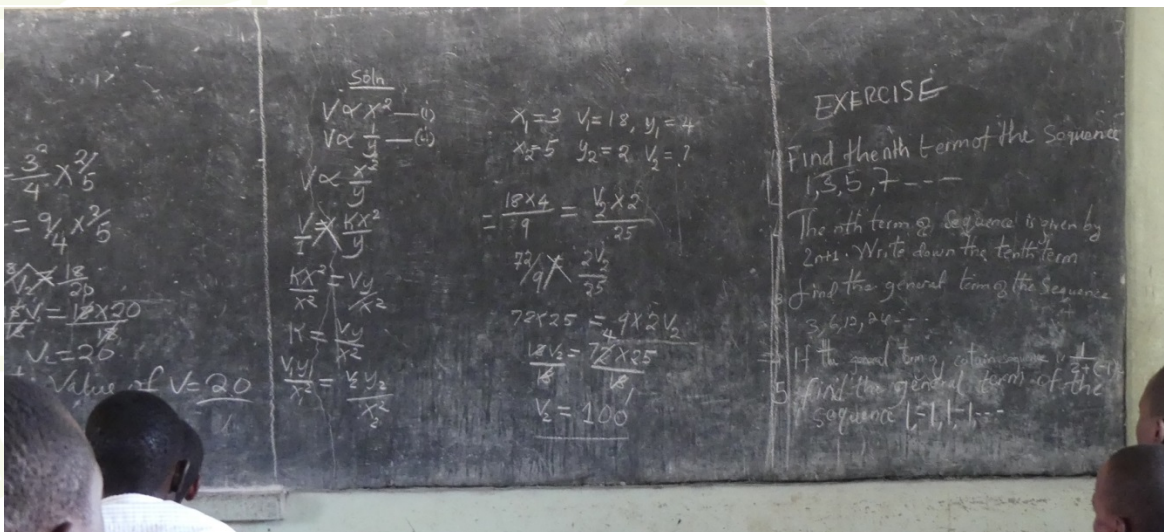 = 3²/4 × 2/5
= 9/4 × 2/5
18/V₂ = 18/20
18V₂ = 18×20
V₂ = 20
Value of V = 20
Soln
V ∝ x² —(i)
V ∝ 1/y —(ii)
V ∝ x²/y
V/1 = Kx²/y
Kx²/x² = Vy/x²
K = Vy/x²
V₁y₁/x² = V₂y₂/x²₂
x₁=3 V₁=18, y₁=4
x₂=5 y₂=2 V₂=?
= 18×4/9 = V₂×2/25
72/9 2V₂/25
72×25 = 9×2V₂
18V₂/18 = 72×25/18
V₂ = 100
EXERCISE
Find the nth term of the Sequence
1, 3, 5, 7 - - -
The nth term of Sequence is given by
2n+1. Write down the tenth term
find the general term of the Sequence
3, 6, 12, 24 - - -
If the
5 find the general term of the
sequence 1, -1, 1, -1, ---